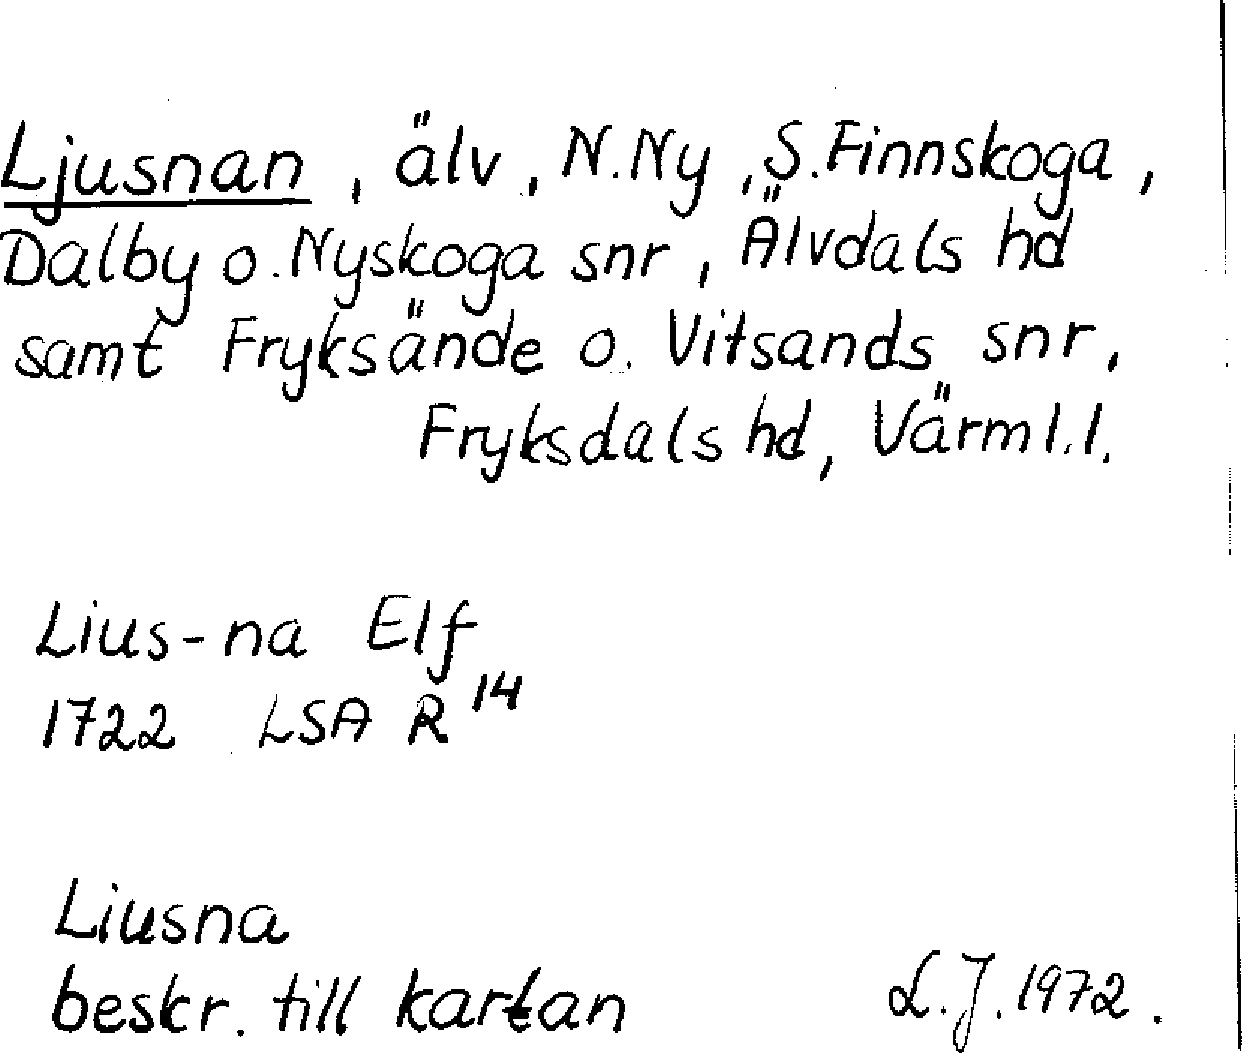 Ljusnan, älv, N.Ny, S.Finnskoga,
Dalby o. Nyskoga snr, Älvdals hd
samt Fryksände o. Vitsands snr,
Fryksdals hd, Värml.l.
Lius-na Elf
1722 LSA R 14
Liusna
beskr. till kartan
L.J. 1972.